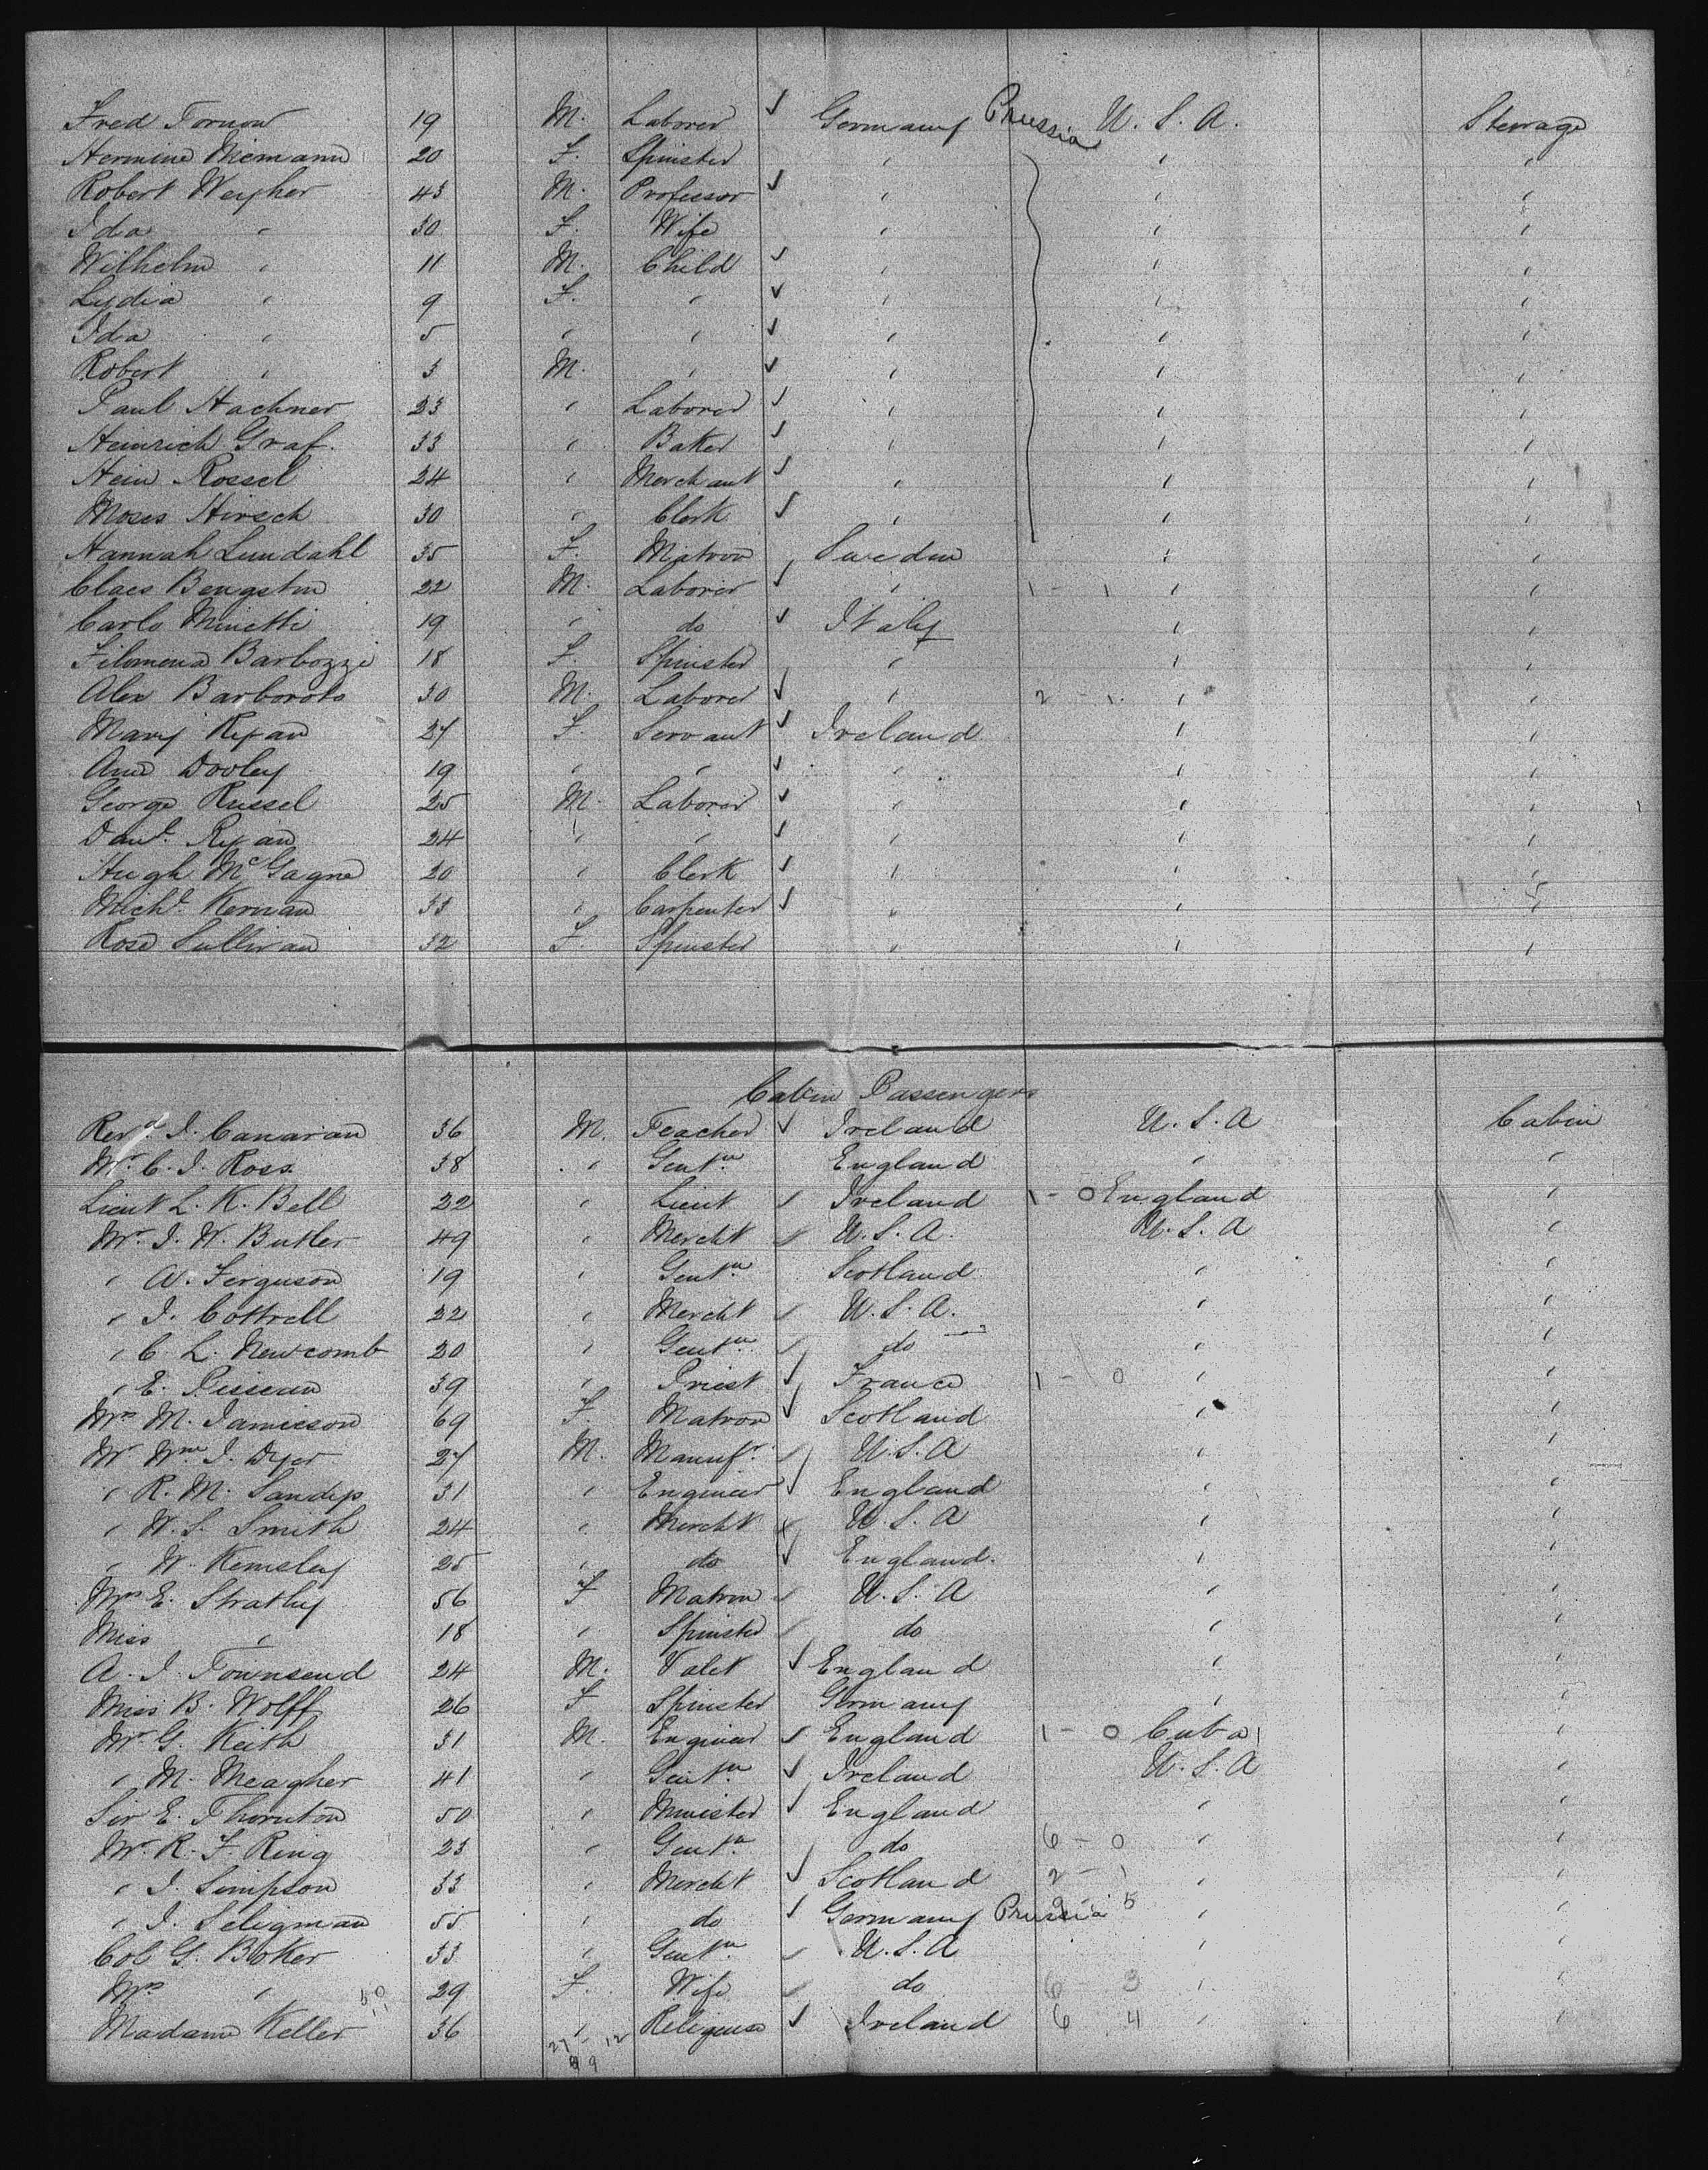 Fred Tornow 19 M. Laborer ✓ Germany Prussia U. S. A. Steerage
Hermine Niemann 20 F. Spinster " " "
Robert Weyher 43 M. Professor ✓ " " "
Ida " 30 F. Wife " " "
Wilhelm " 11 M. Child ✓ " " "
Lydia " 9 F. " ✓ " " "
Ida " 5 " " ✓ " " "
Robert " 3 M. " ✓ " " "
Paul Hachner 23 " Laborer ✓ " " "
Heinrich Graf. 33 " Baker ✓ " " "
Hein Rossel 24 " Merchant ✓ " " "
Moses Hirsch 30 " Clerk ✓ " " "
Hannah Lundahl 35 F. Matron Sweden " "
Claes Bengston 22 M. Laborer ✓ " 1 - 1 " "
Carlo Minetti 19 " do ✓ Italy " "
Filomena Barbozzi 18 F. Spinster " " "
Alex Barboroto 30 M. Laborer ✓ " 2 - 1 " "
Mary Ryan 27 F. Servant ✓ Ireland " "
Ann Dooley 19 " " ✓ " " "
George Russel 25 M. Laborer ✓ " " "
Danl. Ryan 24 " " ✓ " " "
Hugh McGagne 20 " Clerk ✓ " " "
Michl. Kernan 33 " Carpenter ✓ " " "
Rose Sullivan 32 F. Spinster " " "
Cabin Passengers
Revd. J. Canavan 36 M. Teacher ✓ Ireland U. S. A Cabin
Mr. C. J. Ross 38 " Gentn. England " "
Lieut L. K. Bell 22 " Lieut ✓ Ireland 1 - 0 England "
Mr. J. W. Butler 49 " Mercht ✓ U. S. A. U. S. A "
" A. Ferguson 19 " Gentn. Scotland " "
" J. Cottrell 22 " Mercht ✓ U. S. A. " "
" C. L. Newcomb 20 " Gentn. ✓ do " "
" E. 39 " Priest ✓ France 1 - 0 " "
Mrs M. Jamieson 69 F. Matron ✓ Scotland " "
Mr Wm J. Dyer 27 M. Manufr. ✓ U. S. A " "
" R. M. Sandys 31 " Engineer ✓ England " "
" W. S. Smith 24 " Mercht ✓ U. S. A " "
" W. Kemsley 25 " do ✓ England. " "
Mrs E. Strathy 56 F Matron ✓ U. S. A " "
Miss " 18 " Spinster ✓ do " "
A. J. Townsend 24 M. Valet ✓ England " "
Miss B. Wolff 26 F Spinster Germany " "
Mr G. Keith 31 M. Engineer ✓ England 1 - 0 Cuba 1 "
" M. Meagher 41 " Gentn. ✓ Ireland U. S. A "
Sir E. Thornton 50 " Minister ✓ England " "
Mr. R. F. Ring 23 " Gentn. do 6 - 0 " "
" J. Simpson 33 " Mercht ✓ Scotland 2 - 1 " "
" J. Seligman 55 " do ✓ Germany Prussia 5 " "
Col G. Boker 33 " Gentn. ✓ U. S. A " "
Mrs " 29 F. Wife ✓ do 6 - 3 " "
Madame Keller 36 " Religeuse ✓ Ireland 6 4 " "
27 - 12